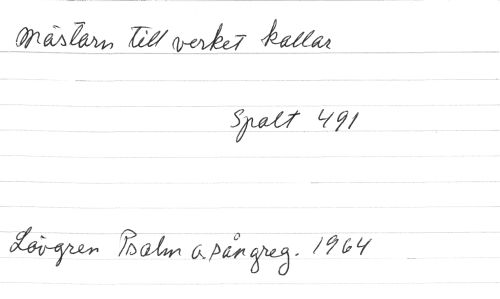 Mästarn till verket kallar
Spalt 491
Lövgren Psalm o. sångreg. 1964